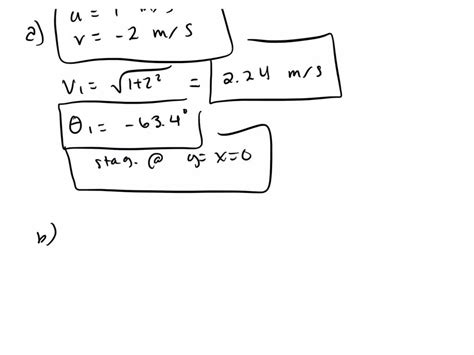 a) u = 1 m/s
v = -2 m/s
V₁ = √1+2² = 2.24 m/s
θ₁ = -63.4°
stag. @ y= x=0
b)